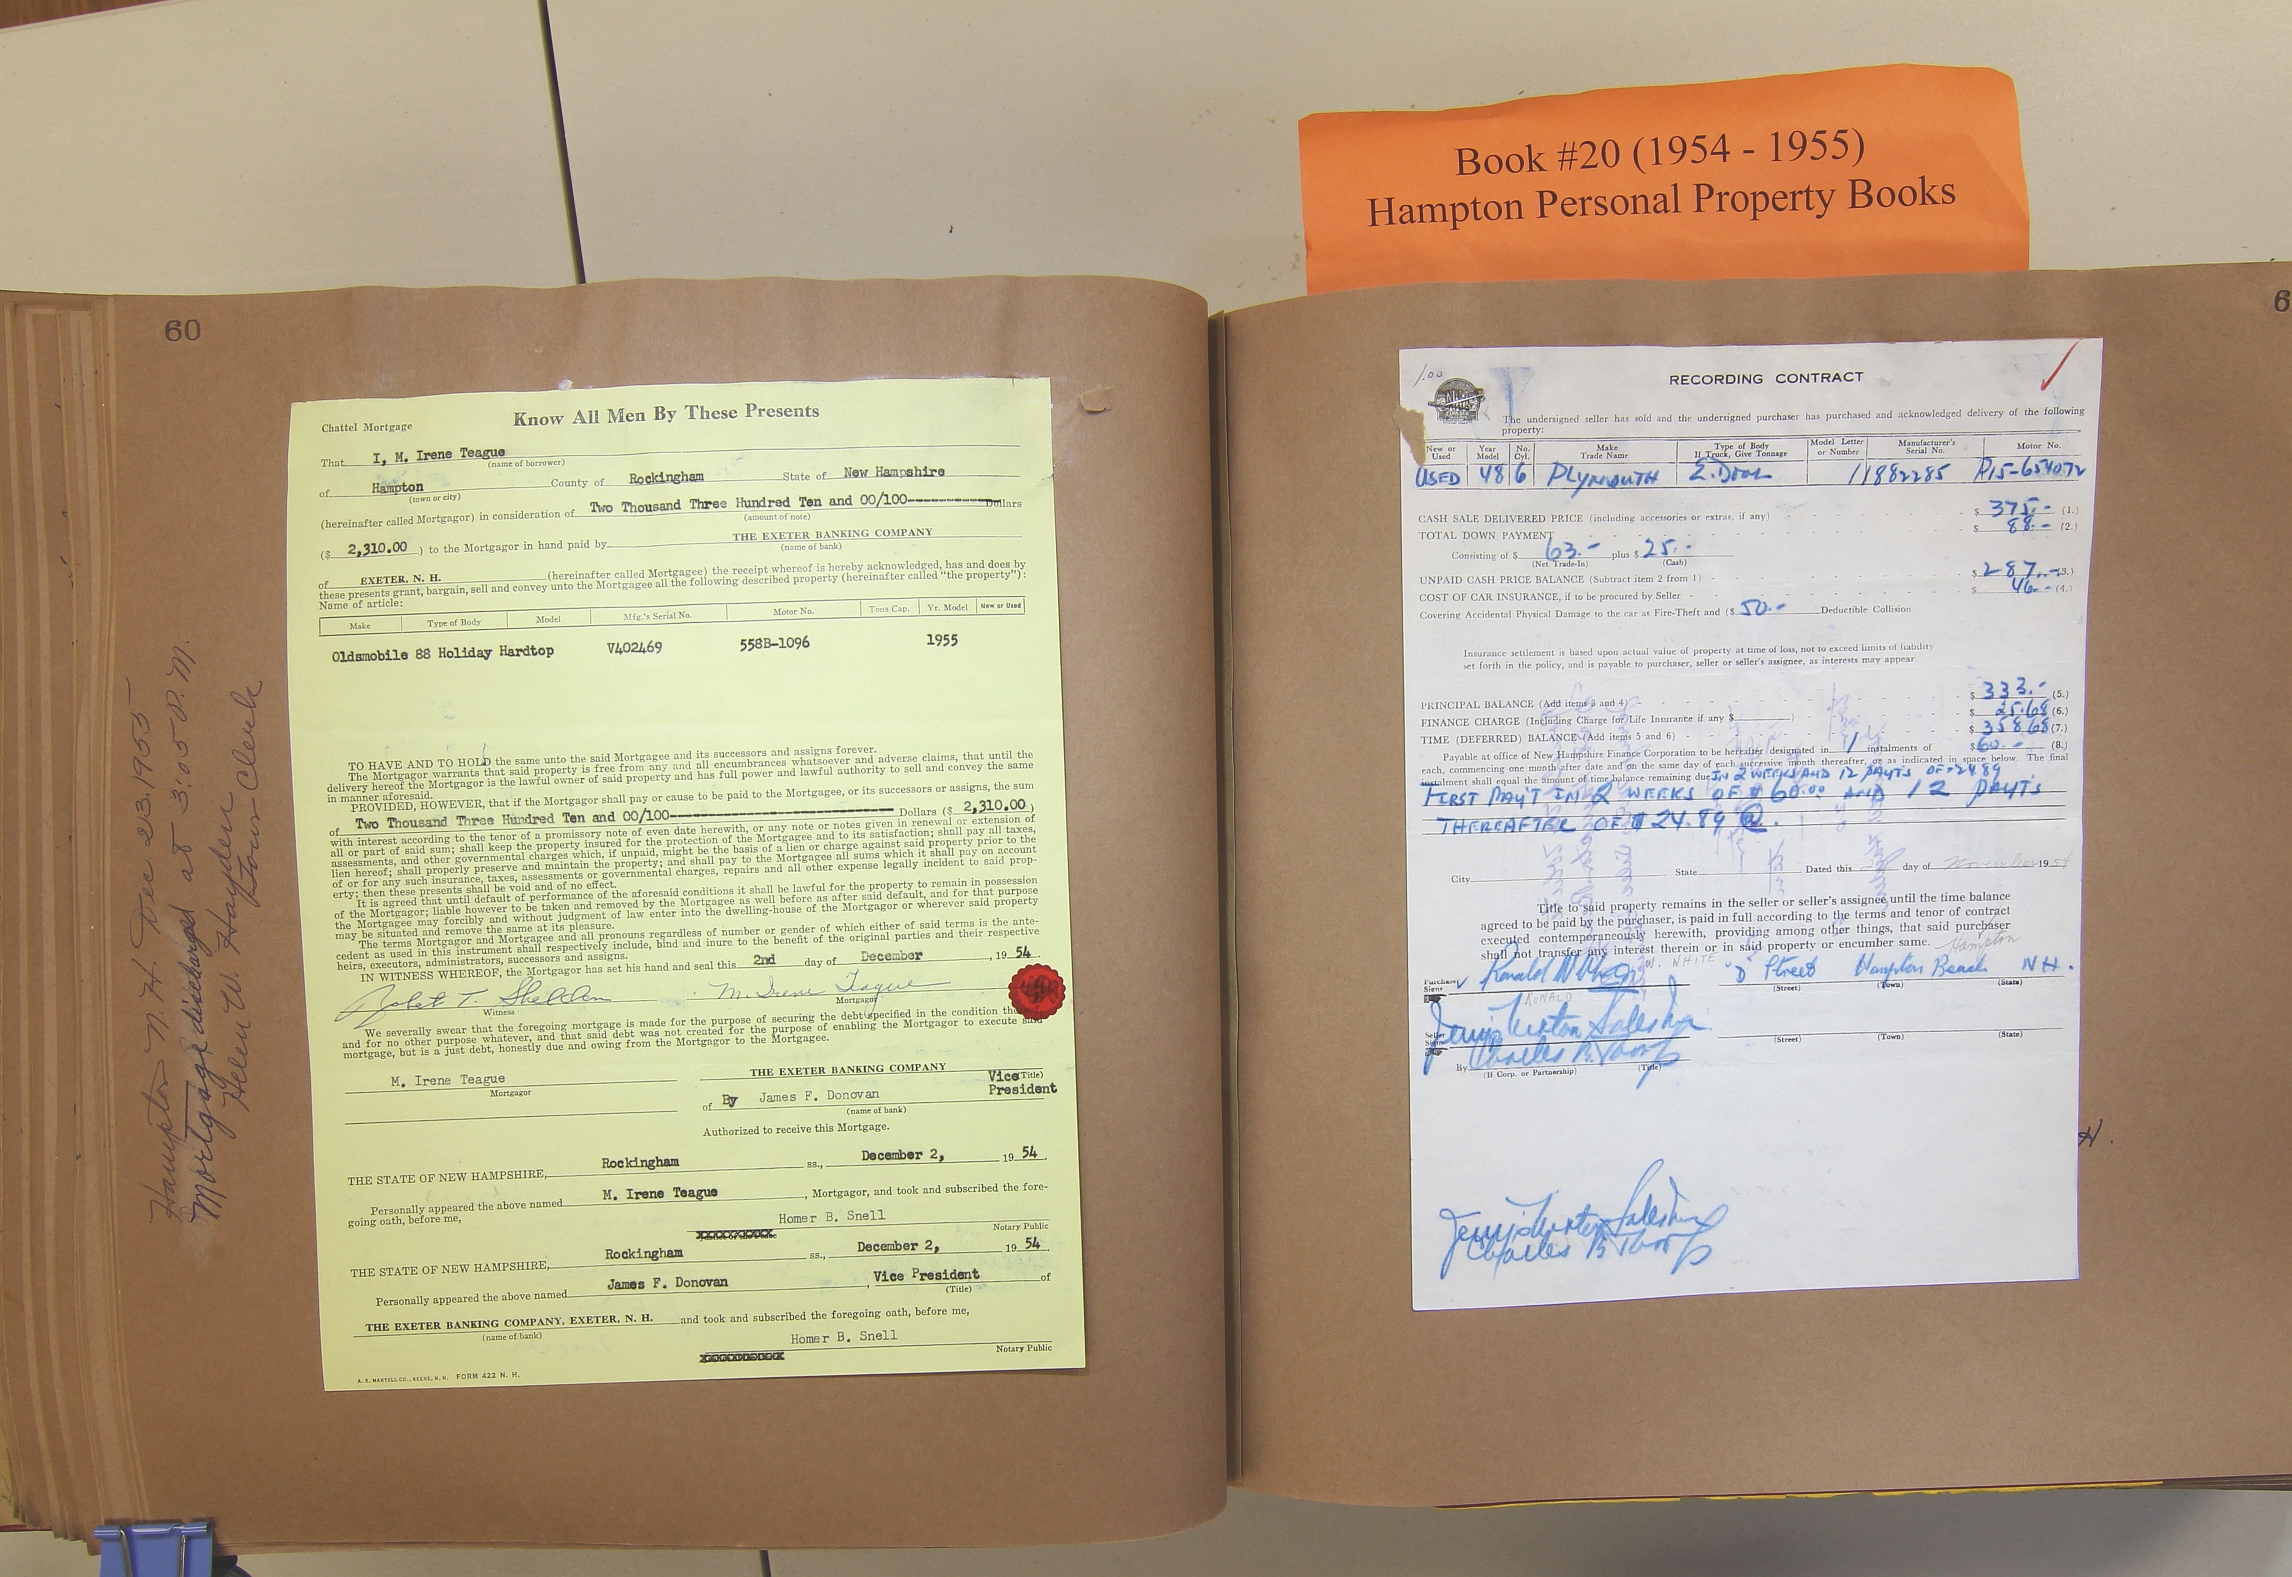 Book #20 (1954 - 1955)
Hampton Personal Property Books
60
Hampton N. H. Dec 23, 1955
Mortgage discharged at 3:05 P. M.
Helen W. Hayden
Town Clerk
Chattel Mortgage
Know All Men By These Presents
That I, M. Irene Teague
(name of borrower)
of Hampton County of Rockingham State of New Hampshire
(town or city)
(hereinafter called Mortgagor) in consideration of Two Thousand Three Hundred Ten and 00/100----------Dollars
(amount of note)
($ 2,310.00 ) to the Mortgagor in hand paid by THE EXETER BANKING COMPANY
(name of bank)
of EXETER, N. H. (hereinafter called Mortgagee) the receipt whereof is hereby acknowledged, has and does by
these presents grant, bargain, sell and convey unto the Mortgagee all the following described property (hereinafter called "the property"):
Name of article:
Make Type of Body Model Mfg.'s Serial No. Motor No. Tons Cap. Yr. Model New or Used
Oldsmobile 88 Holiday Hardtop V402469 558B-1096 1955
TO HAVE AND TO HOLD the same unto the said Mortgagee and its successors and assigns forever.
The Mortgagor warrants that said property is free from any and all encumbrances whatsoever and adverse claims, that until the
delivery hereof the Mortgagor is the lawful owner of said property and has full power and lawful authority to sell and convey the same
in manner aforesaid.
PROVIDED, HOWEVER, that if the Mortgagor shall pay or cause to be paid to the Mortgagee, or its successors or assigns, the sum
of Two Thousand Three Hundred Ten and 00/100-------------------- Dollars ($ 2,310.00 )
with interest according to the tenor of a promissory note of even date herewith, or any note or notes given in renewal or extension of
all or part of said sum; shall keep the property insured for the protection of the Mortgagee and to its satisfaction; shall pay all taxes,
assessments, and other governmental charges which, if unpaid, might be the basis of a lien or charge against said property prior to the
lien hereof; shall properly preserve and maintain the property; and shall pay to the Mortgagee all sums which it shall pay on account
of or for any such insurance, taxes, assessments or governmental charges, repairs and all other expense legally incident to said prop-
erty; then these presents shall be void and of no effect.
It is agreed that until default of performance of the aforesaid conditions it shall be lawful for the property to remain in possession
of the Mortgagor; liable however to be taken and removed by the Mortgagee as well before as after said default, and for that purpose
the Mortgagee may forcibly and without judgment of law enter into the dwelling-house of the Mortgagor or wherever said property
may be situated and remove the same at its pleasure.
The terms Mortgagor and Mortgagee and all pronouns regardless of number or gender of which either of said terms is the ante-
cedent as used in this instrument shall respectively include, bind and inure to the benefit of the original parties and their respective
heirs, executors, administrators, successors and assigns.
IN WITNESS WHEREOF, the Mortgagor has set his hand and seal this 2nd day of December , 19 54
Robert T. Shelden M. Irene Teague
Witness Mortgagor
We severally swear that the foregoing mortgage is made for the purpose of securing the debt specified in the condition
and for no other purpose whatever, and that said debt was not created for the purpose of enabling the Mortgagor to execute said
mortgage, but is a just debt, honestly due and owing from the Mortgagor to the Mortgagee.
M. Irene Teague
Mortgagor
THE EXETER BANKING COMPANY
of By James F. Donovan Vice President (Title)
(name of bank)
Authorized to receive this Mortgage.
THE STATE OF NEW HAMPSHIRE, Rockingham ss., December 2, 19 54.
Personally appeared the above named M. Irene Teague , Mortgagor, and took and subscribed the fore-
going oath, before me,
Homer B. Snell
Notary Public
THE STATE OF NEW HAMPSHIRE, Rockingham ss., December 2, 19 54.
Personally appeared the above named James F. Donovan , Vice President of
(Title)
THE EXETER BANKING COMPANY, EXETER, N. H. and took and subscribed the foregoing oath, before me,
(name of bank)
Homer B. Snell
Notary Public
A. E. MARTELL CO., KEENE, N. H. FORM 422 N. H.
6
1.00
RECORDING CONTRACT
The undersigned seller has sold and the undersigned purchaser has purchased and acknowledged delivery of the following
property:
New or Used Year Model No. Cyl. Make Trade Name Type of Body If Truck, Give Tonnage Model Letter or Number Manufacturer's Serial No. Motor No.
USED 48 6 PLYMOUTH 2.Door 11882285 P15-654072
CASH SALE DELIVERED PRICE (including accessories or extras, if any) $ 375.- (1.)
TOTAL DOWN PAYMENT $ 88.- (2.)
Consisting of $ 63.- plus $ 25.-
(Net Trade-In) (Cash)
UNPAID CASH PRICE BALANCE (Subtract item 2 from 1) $ 287.- (3.)
COST OF CAR INSURANCE, if to be procured by Seller $ 46.- (4.)
Covering Accidental Physical Damage to the car as Fire-Theft and ($ 50.- Deductible Collision
Insurance settlement is based upon actual value of property at time of loss, not to exceed limits of liability
set forth in the policy, and is payable to purchaser, seller or seller's assignee, as interests may appear.
PRINCIPAL BALANCE (Add items 3 and 4) $ 333.- (5.)
FINANCE CHARGE (Including Charge for Life Insurance if any $ ) $ 25.68 (6.)
TIME (DEFERRED) BALANCE (Add items 5 and 6) $ 358.68 (7.)
Payable at office of New Hampshire Finance Corporation to be hereafter designated in 1 instalments of $ 60.- (8.)
each, commencing one month after date and on the same day of each successive month thereafter, or as indicated in space below. The final
instalment shall equal the amount of time balance remaining due. IN 2 WEEKS AND 12 PAYTS OF $24.89
FIRST PAY'T IN 2 WEEKS OF $60.00 AND 12 PAYTS
THEREAFTER OF $24.89 @.
City State Dated this day of November 19 54
Title to said property remains in the seller or seller's assignee until the time balance
agreed to be paid by the purchaser, is paid in full according to the terms and tenor of contract
executed contemporaneously herewith, providing among other things, that said purchaser
shall not transfer any interest therein or in said property or encumber same.
Hampton
W. WHITE
Purchaser Signs Ronald W "D" Street Hampton Beach N.H.
(Street) (Town) (State)
RONALD
Seller Signs
(Street) (Town) (State)
By Charles B.
(If Corp. or Partnership) (Title)
Charles B
H.